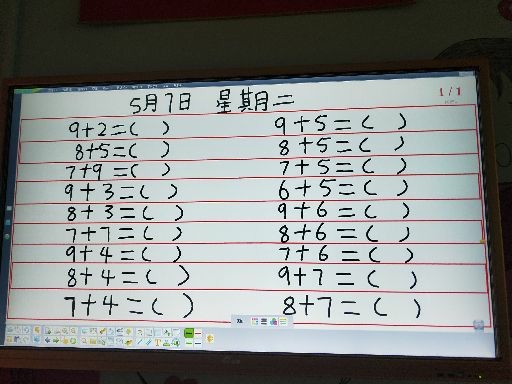 5月7日 星期二
1/1
9+2=( ) 9+5=( )
8+5=( ) 8+5=( )
7+9=( ) 7+5=( )
9+3=( ) 6+5=( )
8+3=( ) 9+6=( )
7+7=( ) 8+6=( )
9+4=( ) 7+6=( )
8+4=( ) 9+7=( )
7+4=( ) 8+7=( )